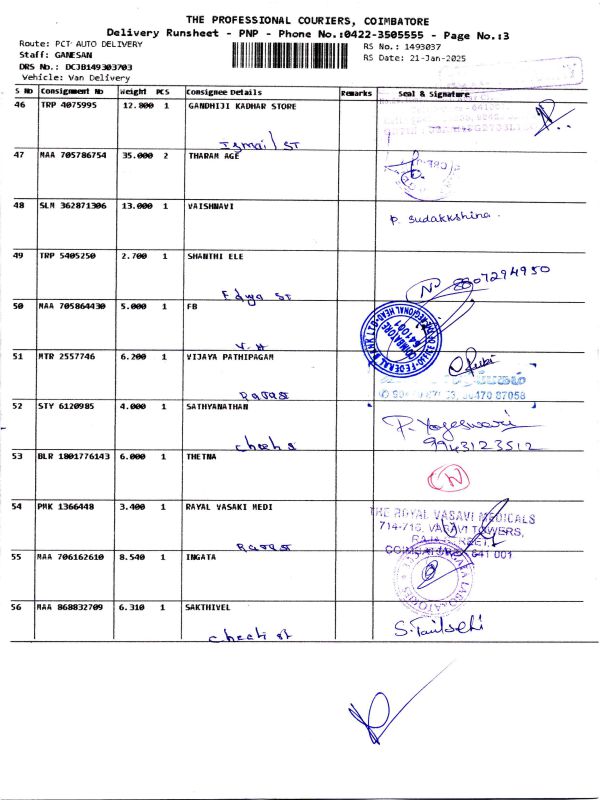 THE PROFESSIONAL COURIERS, COIMBATORE
Delivery Runsheet - PNP - Phone No.:0422-3505555 - Page No.:3
Route: PCT AUTO DELIVERY
Staff: GANESAN
DRS No.: DCJB149303703
Vehicle: Van Delivery
RS No.: 1493037
RS Date: 21-Jan-2025
S No Consignment No Weight PCS Consignee Details Remarks Seal & Signature
46 TRP 4075995 12.800 1 GANDHIJI KADHAR STORE
Ismail ST
47 MAA 705786754 35.000 2 THARAM AGE
48 SLM 362871306 13.000 1 VAISHNAVI
P. Sudakkshina
49 TRP 5405250 2.700 1 SHANTHI ELE
8807294950
Edya ST
50 MAA 705864430 5.000 1 FB
V.H
COIMBATORE
641001
51 MTR 2557746 6.200 1 VIJAYA PATHIPAGAM
90470 87058
52 STY 6120985 4.000 1 SATHYANATHAN
P. Yogeswari
9943123512
53 BLR 1801776143 6.000 1 THETNA
N
54 PMK 1366448 3.400 1 RAYAL VASAKI MEDI
THE ROYAL VASAVI MEDICALS
714-716, VASAVI TOWERS,
COIMBATORE 641 001
55 MAA 706162610 8.540 1 INGATA
56 MAA 868832709 6.310 1 SAKTHIVEL